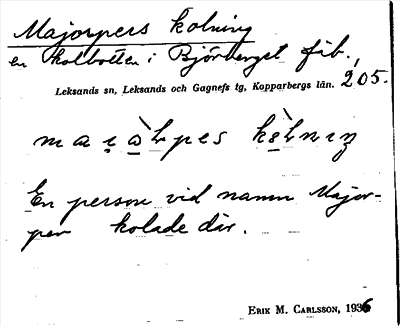 Majorpers kolning
en kolbotten i Björberget fäb.,
205.
Leksands sn, Leksands och Gagnefs tg, Kopparbergs län.
En person vid namn Major-
per kolade där.
ERIK M. CARLSSON, 1936